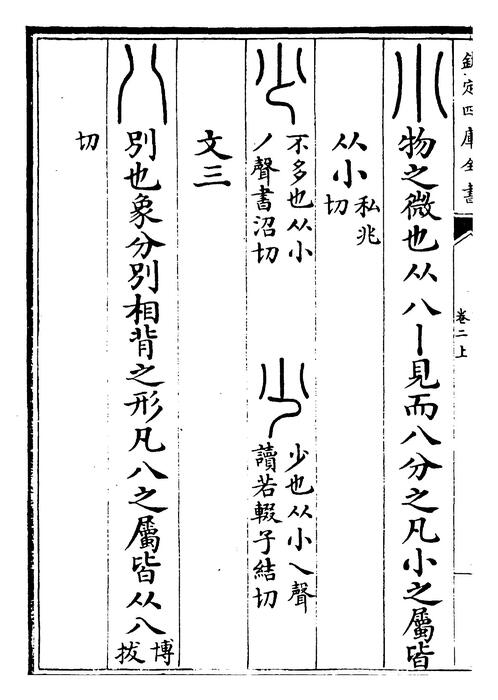 欽定四庫全書
卷二上
小 物之微也从八丨見而八分之凡小之屬皆
从小私兆切
少 不多也从小丿聲書沼切 𡮐 少也从小乀聲讀若輟子結切
文三
八 別也象分別相背之形凡八之屬皆从八博拔
切